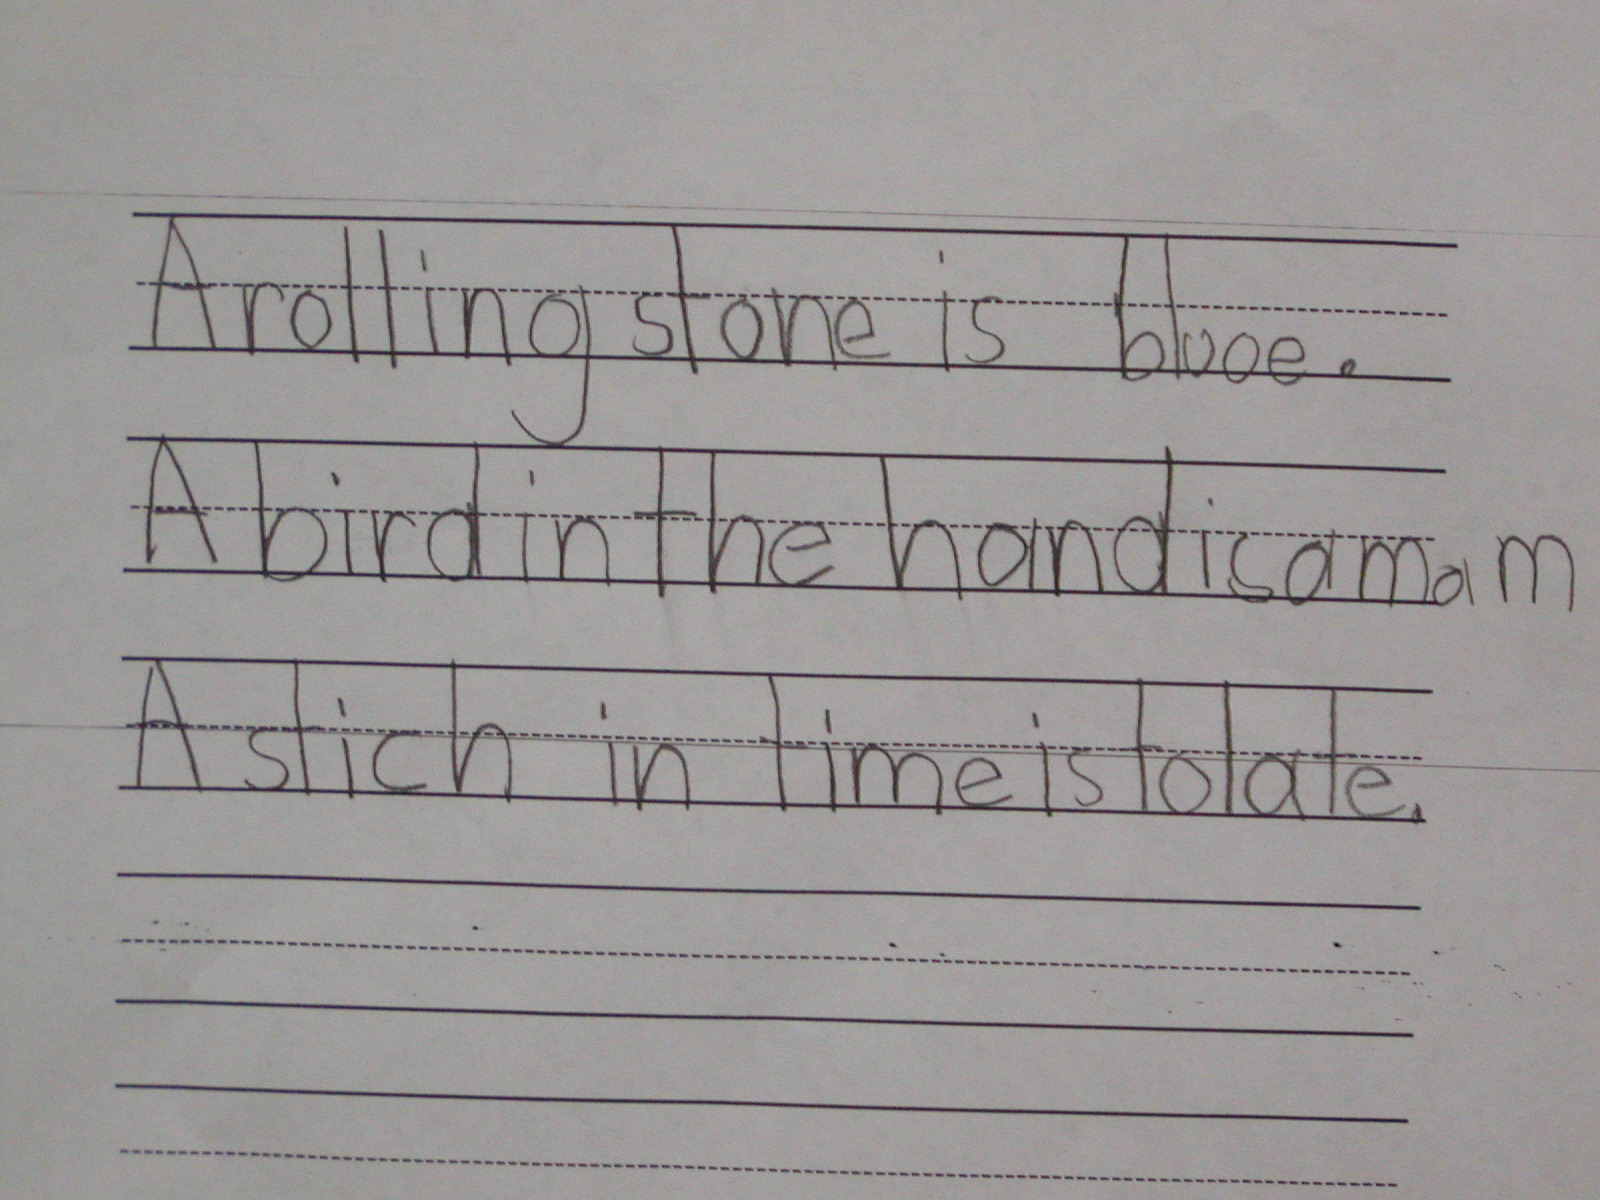 A rolling stone is bluoe.
A bird in the hand is a mam
A stich in time is to late.